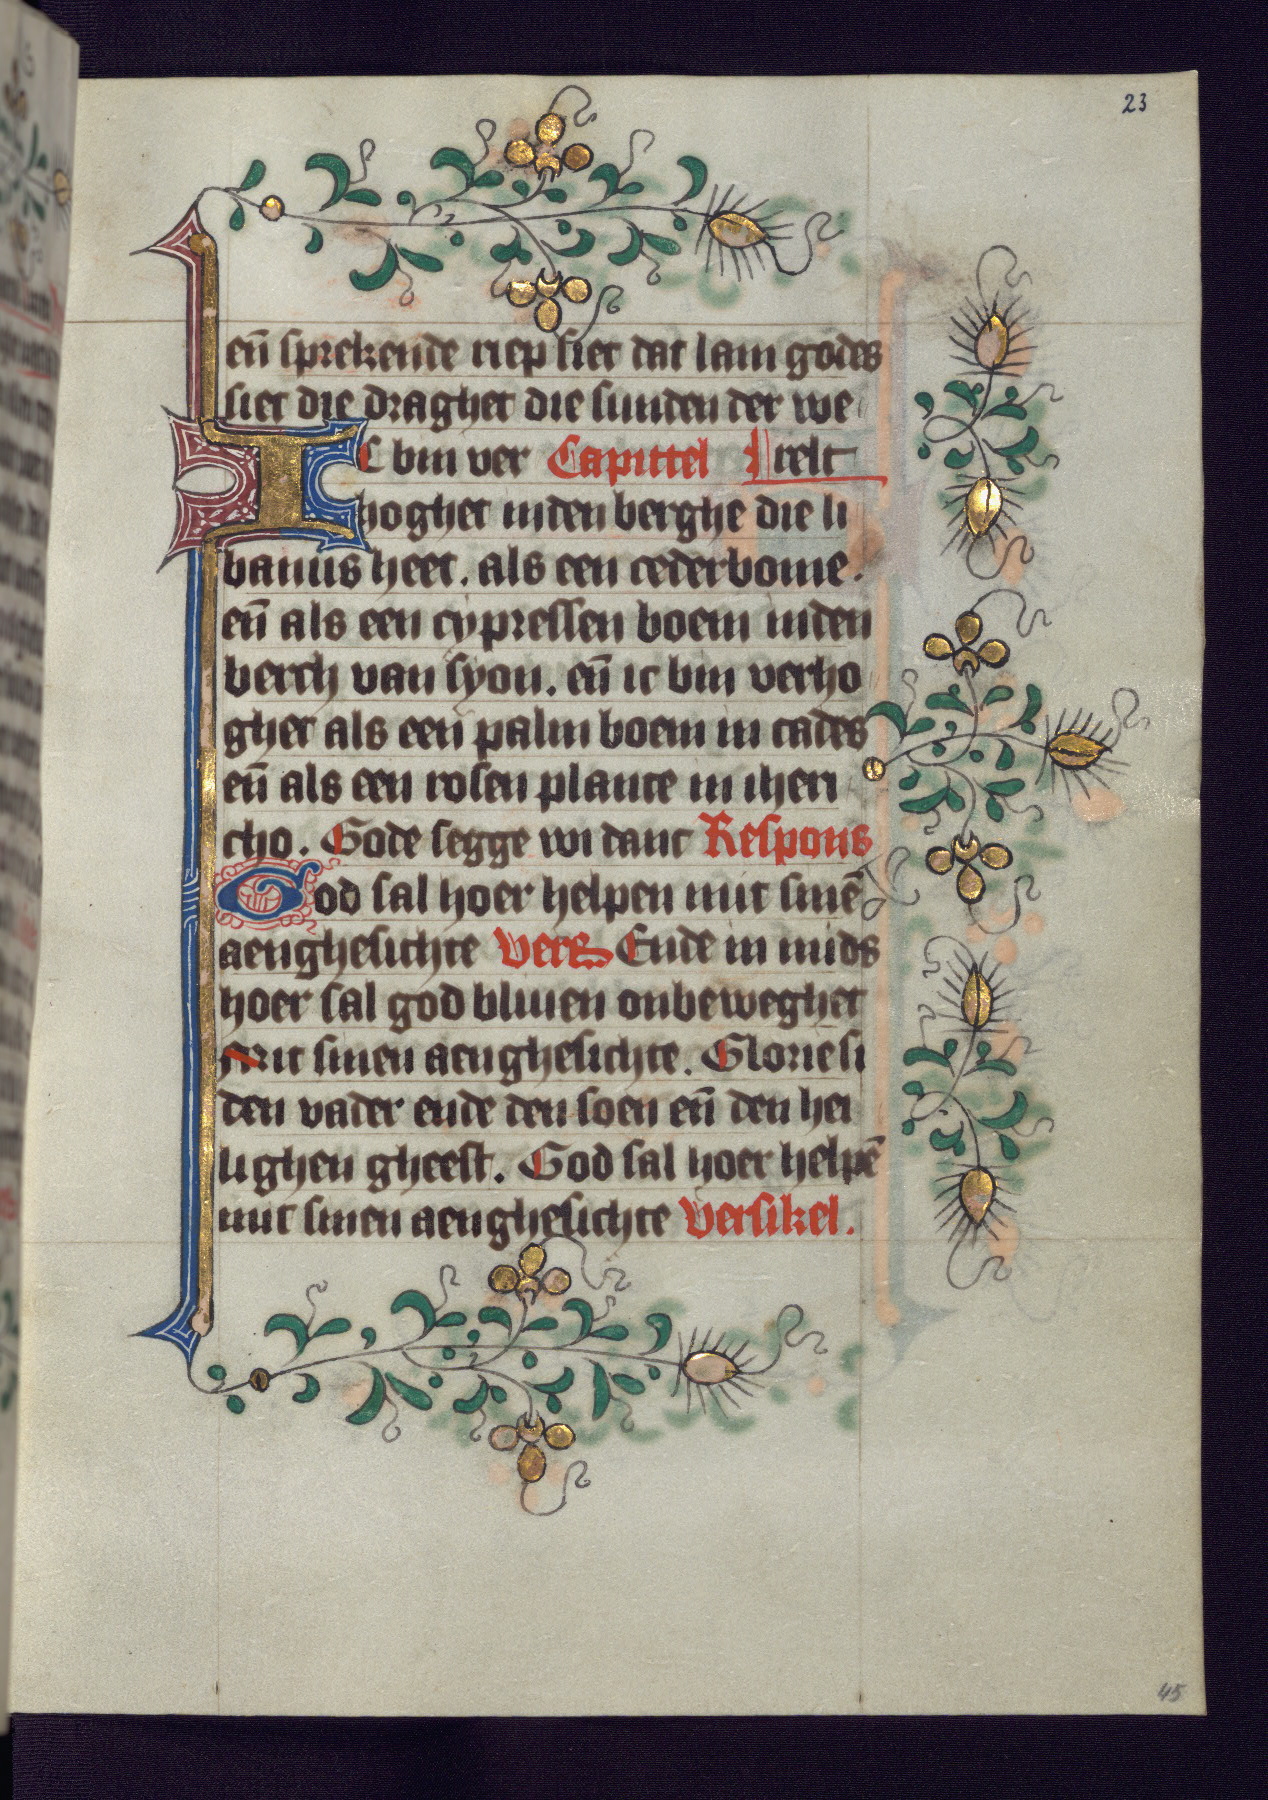 23
eñ sprekende riep siet dat lam godes
siet die draghet die sunden der we
IC bin ver Capittel relt
hoghet inden berghe die li
banus heet. als een cederbome.
eñ als een cypressen boem inden
berch van syon. eñ ic bin verho
ghet als een palm boem in cades
eñ als een rosen plante in iheri
cho. Gode segge wi danc Respons
God sal hoer helpen mit sinē
aenghesichte Vers Ende in mids
hoer sal god bliuen onbeweghet
Mit sinen aenghesichte. Glorie si
den vader ende den soen eñ den hei
lighen gheest. God sal hoer helpē
mit sinen aenghesichte Versikel.
45